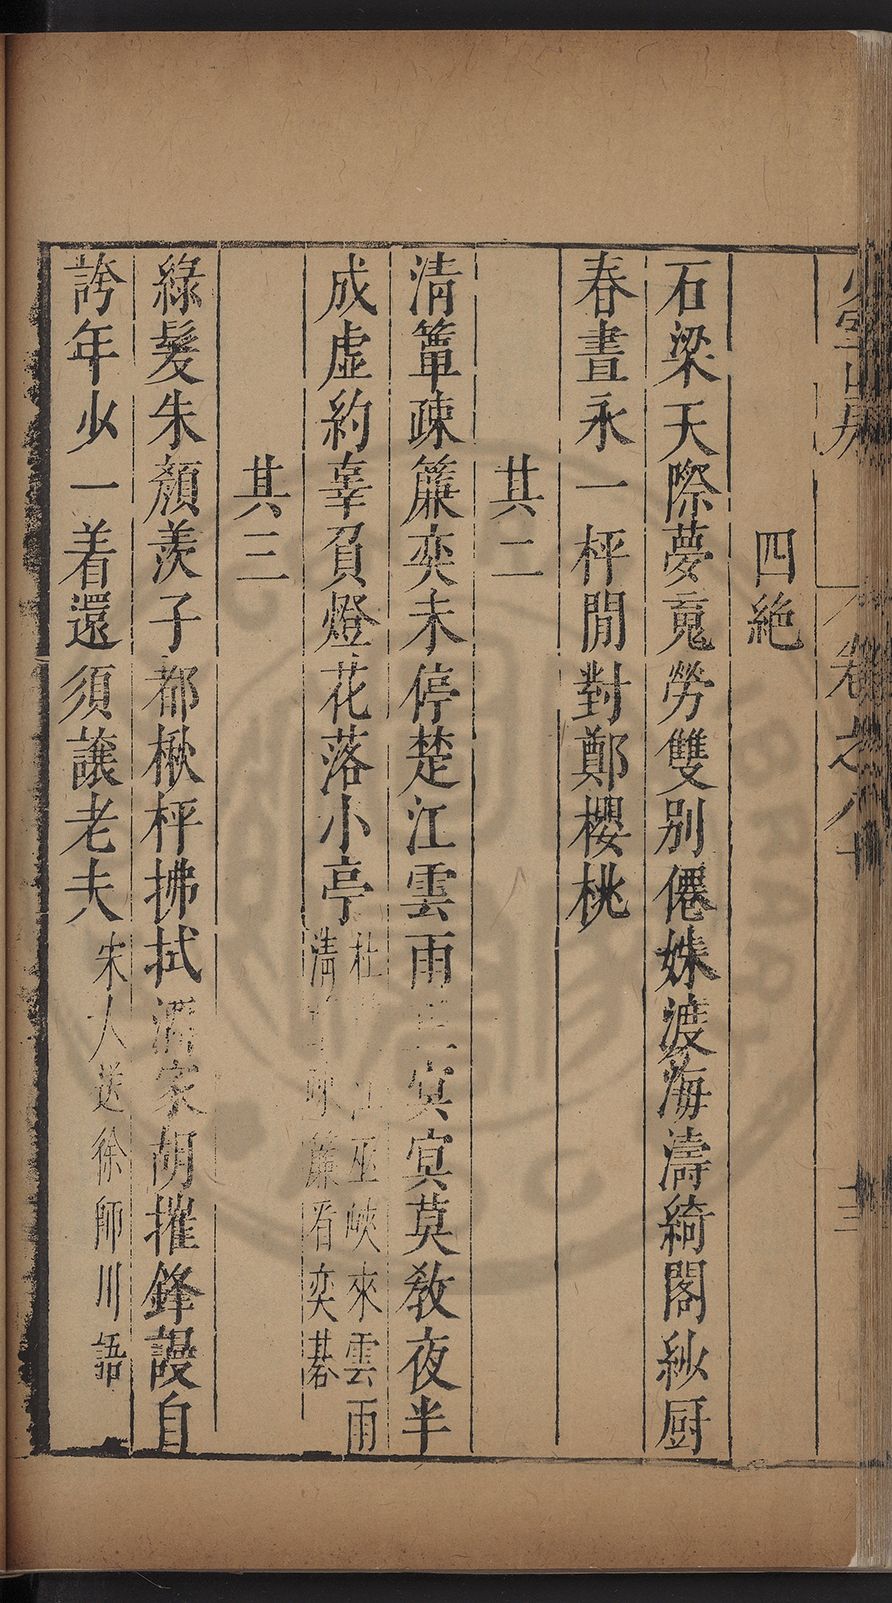 卷之八
四絕
石梁天際夢䰟勞雙別僊姝渡海濤綺閣紗厨
春晝永一枰閒對鄭櫻桃
其二
清簟疎簾奕未停楚江雲雨冥冥莫教夜半
成虛約辜負燈花落小亭
杜江巫峽來雲雨
清簾看奕碁
其三
綠髮朱顏羨子都楸枰拂拭酒家胡摧鋒謾自
誇年少一着還須讓老夫
宋人送徐師川語